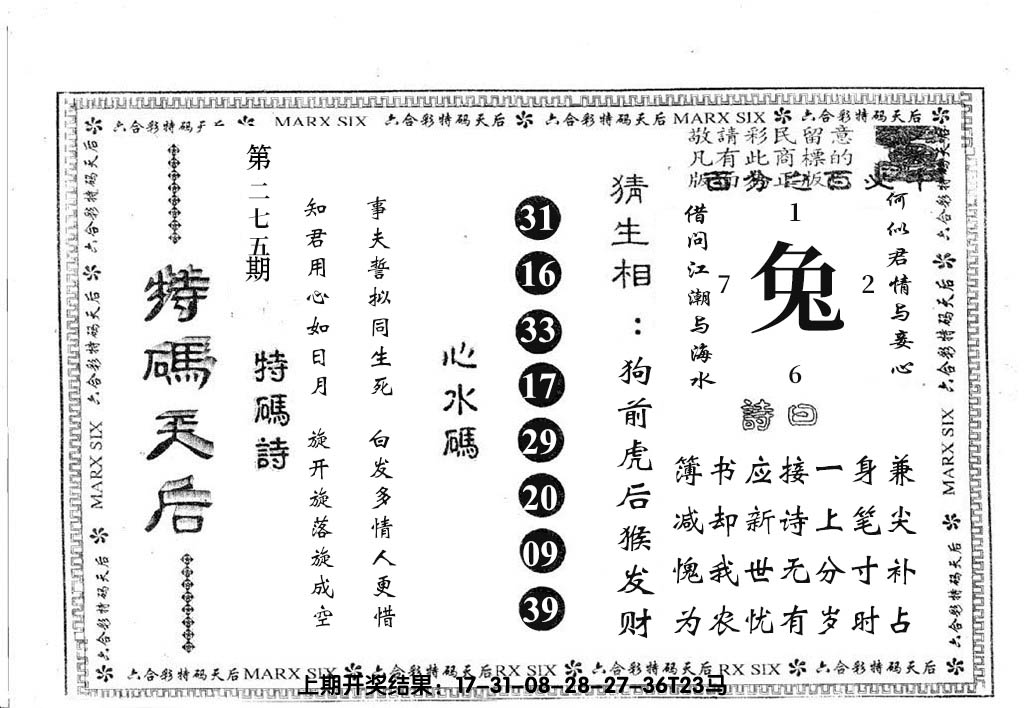 六合彩特码天后 MARX SIX 六合彩特码天后 六合彩特码天后 MARX SIX 六合彩特码天后
敬請彩民留意
凡有此商標的
版面为正版
百分之百
何似君情与妾心
1
兔
7
2
6
借问江潮与海水
詩曰
兼尖补占
身笔寸时
一上分岁
接诗无有
应新世忧
书却我农
簿减愧为
猜生相：狗前虎后猴发财
31
16
33
17
29
20
09
39
心水碼
事夫誓拟同生死 白发多情人更惜
知君用心如日月 旋开旋落旋成空
特碼詩
第二七五期
特碼天后
六合彩特码天后 六合彩特码天后 MARX SIX 六合彩特码天后
六合彩特码天后 六合彩特码天后 MARX SIX 六合彩特码天后
六合彩特码天后 MARX SIX 六合彩特码天后 RX SIX 六合彩特码天后 RX SIX 六合彩特码天后
上期开奖结果：17-31-08-28-27-36T23马